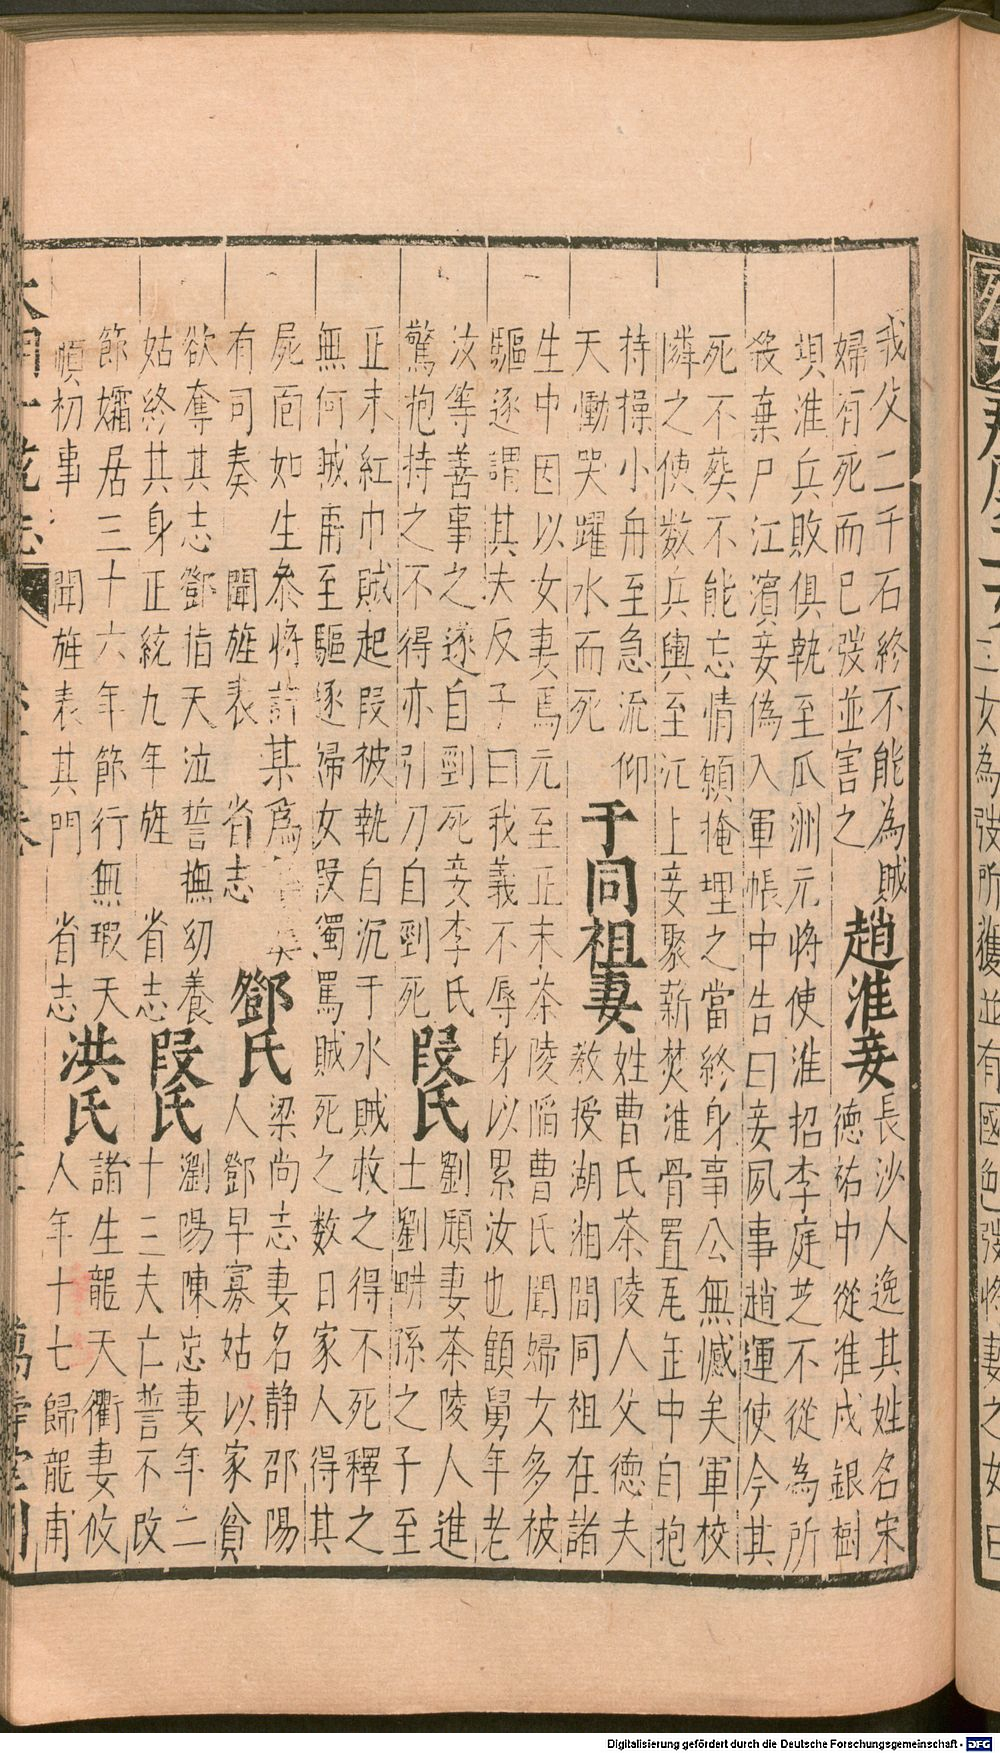 二女為弢所獲並有國色弢將妻之女曰
我父二千石終不能為賊
婦有死而已弢並害之
趙淮妾
長沙人逸其姓名宋
德祐中從淮戍銀樹
埧淮兵敗俱執至瓜洲元將使淮招李庭芝不從為所
殺棄尸江濱妾偽入軍帳中告曰妾夙事趙運使今其
死不葬不能忘情願掩埋之當終身事公無憾矣軍校
憐之使数兵輿至江上妾聚薪焚淮骨置瓦缶中自抱
持操小舟至急流仰
天慟哭躍水而死
于同祖妻
姓曹氏茶陵人父德夫
教授湖湘間同祖在諸
生中因以女妻焉元至正末茶陵陷曹氏聞婦女多被
驅逐謂其夫反子曰我義不辱身以累汝也顧舅年老
汝等善事之遂自剄死妾李氏
驚抱持之不得亦引刀自剄死
段氏
劉頎妻茶陵人進
士劉畊孫之子至
正末紅巾賊起段被執自沉于水賊救之得不死釋之
無何賊再至驅逐婦女段獨罵賊死之数日家人得其
屍面如生参將許某為
有司奏 聞旌表 省志
鄧氏
梁尚志妻名静邵陽
人鄧早寡姑以家貧
欲奪其志鄧指天泣誓撫幼養
姑終其身正統九年旌 省志
段氏
瀏陽陳忠妻年二
十三夫亡誓不改
節孀居三十六年節行無瑕天
順初事 聞旌表其門 省志
洪氏
諸生龍天衢妻攸
人年十七歸龍甫
大明一統志
萬壽堂刊
Digitalisierung gefördert durch die Deutsche Forschungsgemeinschaft - DFG